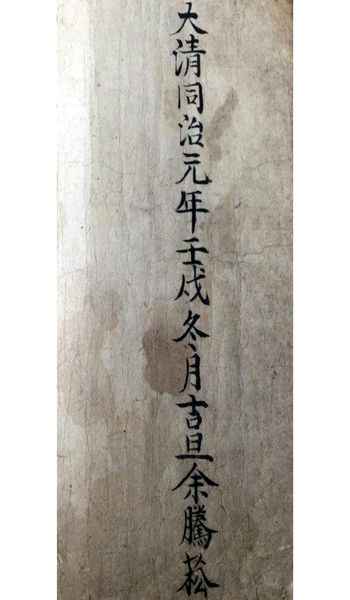 大清同治元年壬戌冬月吉旦余騰菘